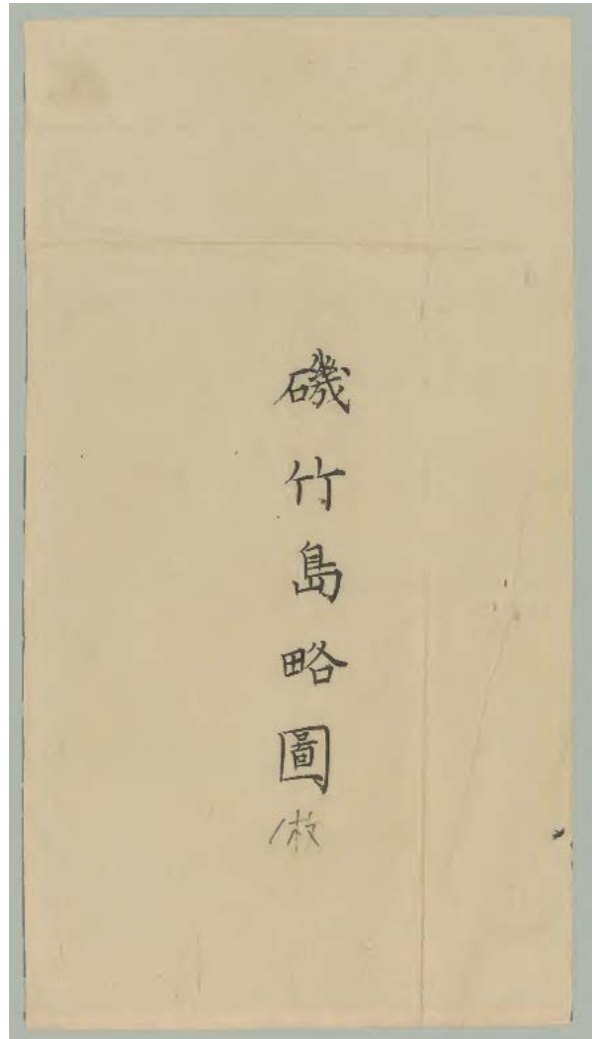 磯竹島略圖
1枚